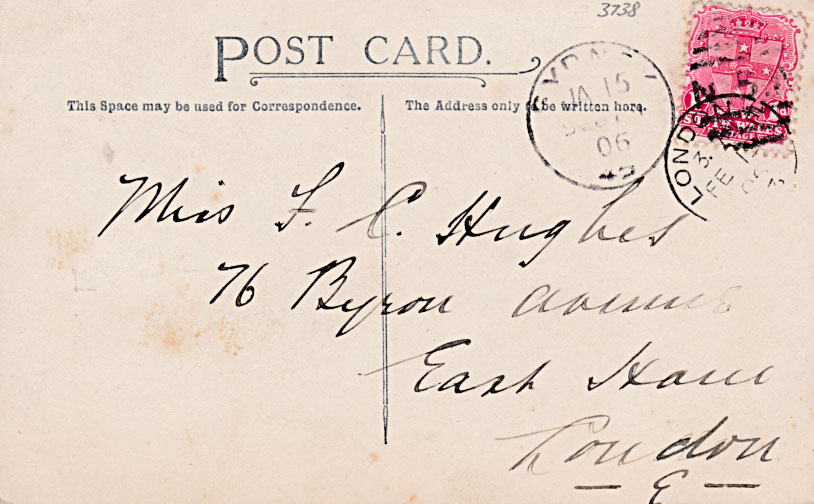 3738
POST CARD.
This Space may be used for Correspondence.
The Address only to be written here.
SYDNEY
JA 15
06
SOUTH WALES
LONDON
FE
Miss F. C. Hughes
76 Byron Avenue
East Ham
London
E